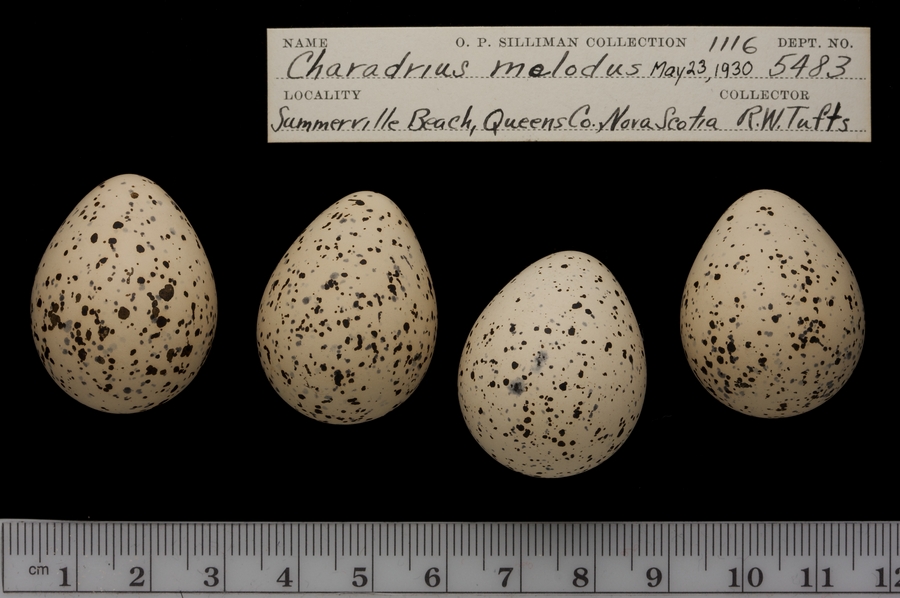 NAME O. P. SILLIMAN COLLECTION 1116 DEPT. NO.
Charadrius melodus May 23, 1930 5483
LOCALITY COLLECTOR
Summerville Beach, Queens Co., Nova Scotia R.W. Tufts
cm 1 2 3 4 5 6 7 8 9 10 11 12